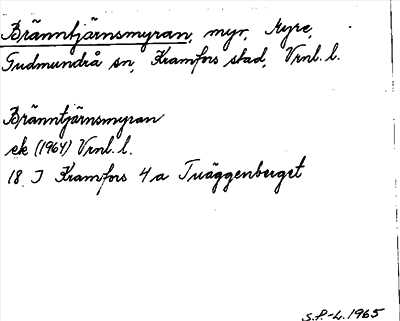 Bränntjärnsmyran, myr, Myre,
Gudmundrå sn, Kramfors stad, Vrnl. l.
Bränntjärnsmyran
ek (1964) Vrnl. l.
18 I Kramfors 4 a Tväggenberget
S.P.-L. 1965